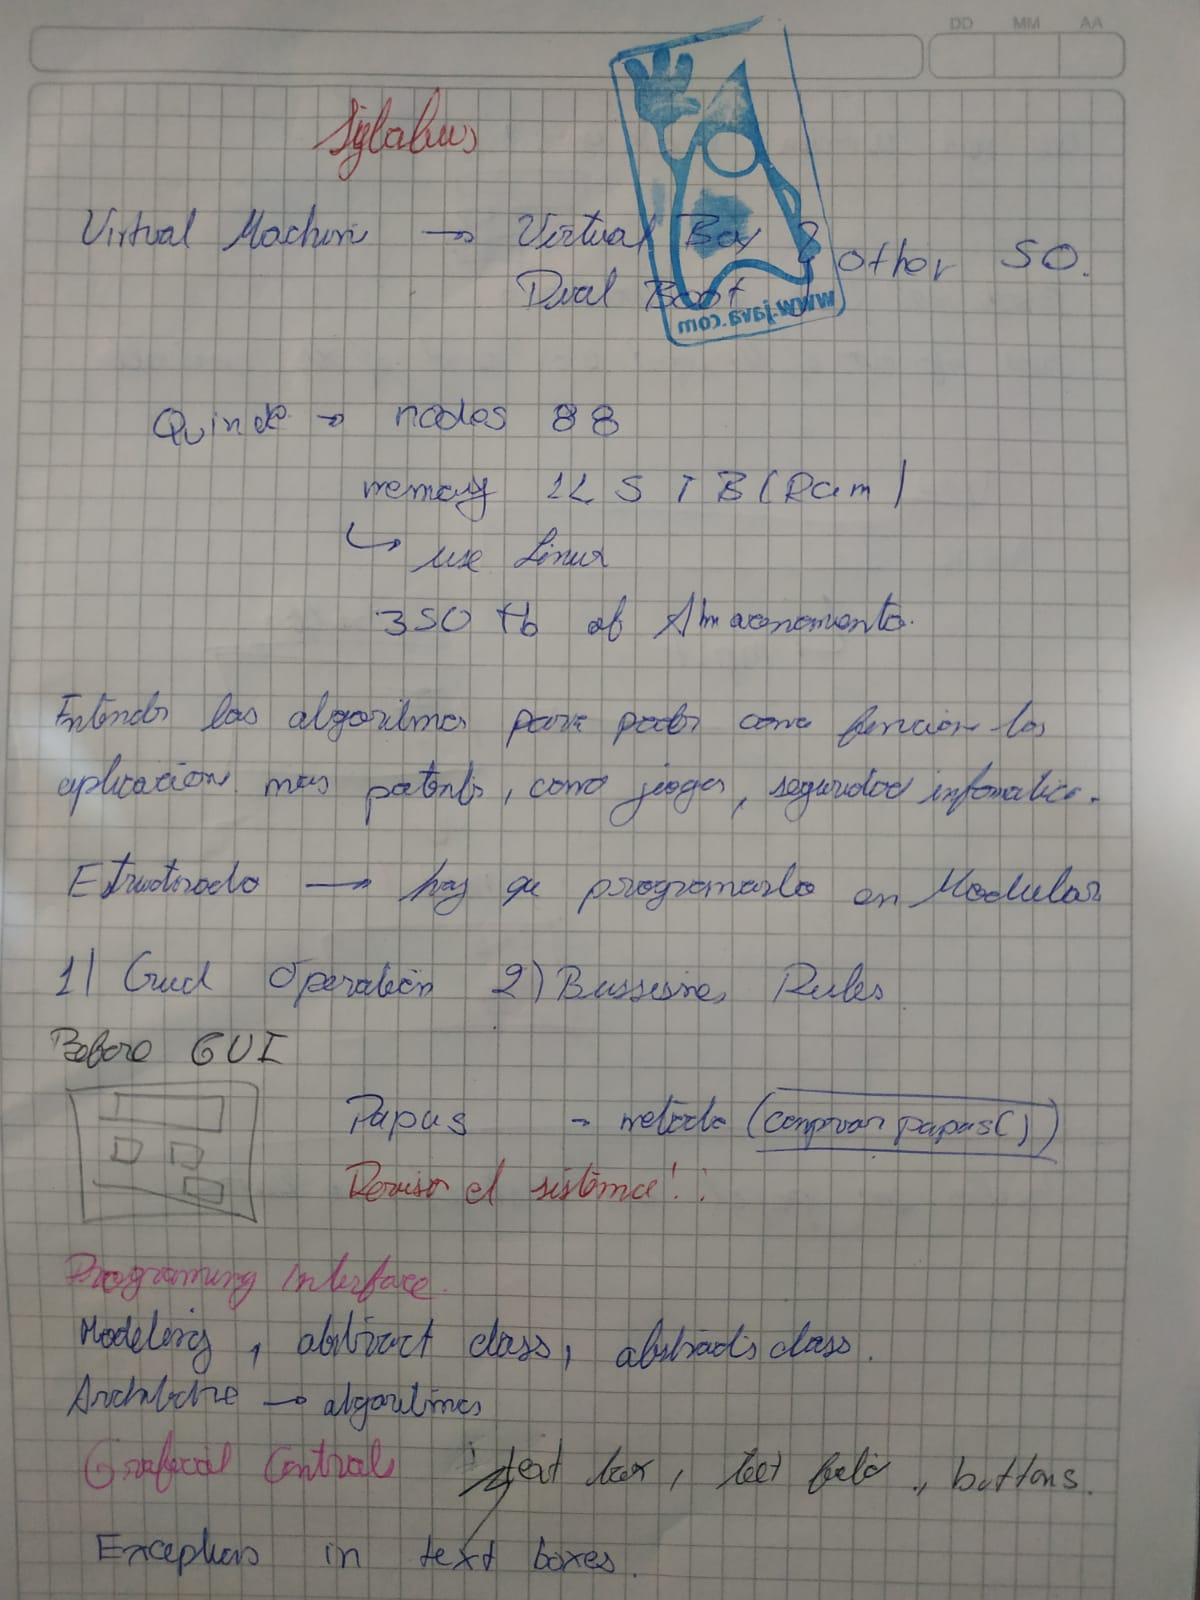 DD MM AA
Sylabus
Virtual Machine → Virtual Box } other SO.
Dual Boot
www.java.com
Quinde → nodes 88
memory 11 5 TB (Ram)
↳ use Linux
350 tb of Almacenamiento.
Entender los algoritmos para poder como funcionan las
aplicacions mas potents, como juegos, seguridad infomatica.
Estructurado → hay que programarlo en Modular
1) Crud Operation 2) Bussisnes Rules
Before GUI
Papus → metodo (comprar papus())
Revisar el sistema!
Programing Interface.
Modeling, abstract class, class.
→ algoritmos
Grafical Controls text box, text field, buttons.
Exceptions in text boxes.